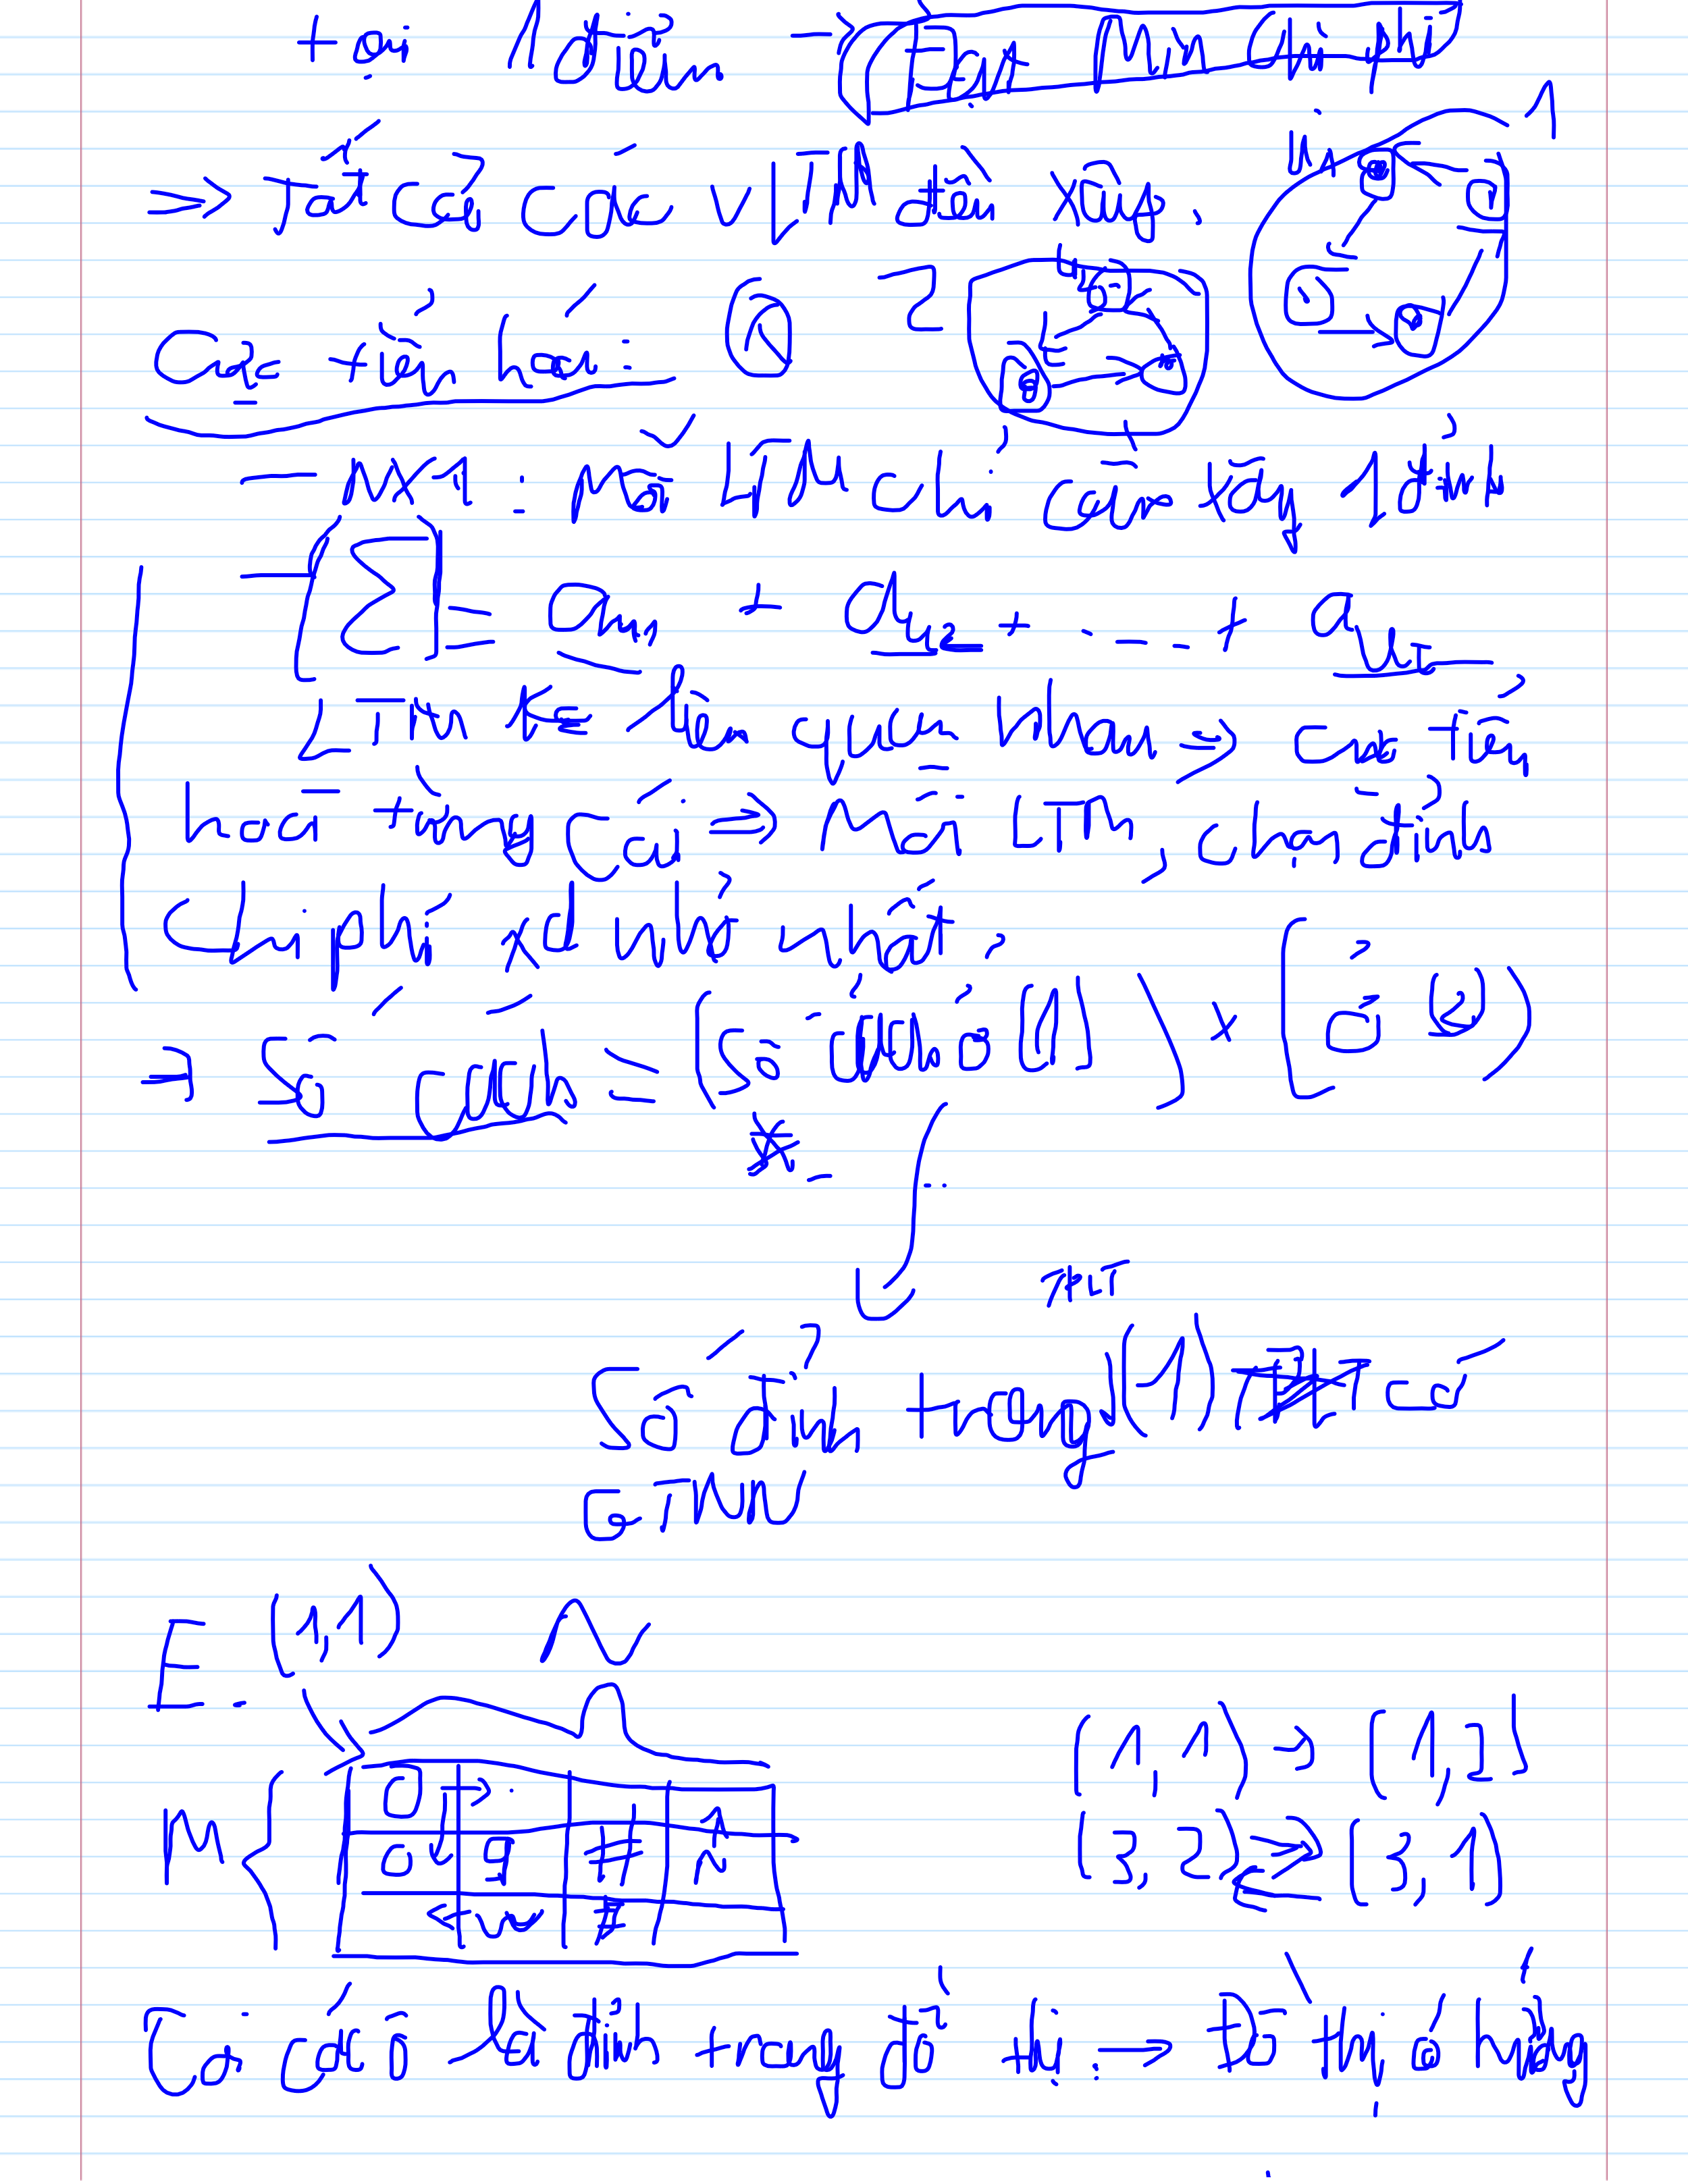 tại 1 điểm → Min chi phí
1
⇒ Tất cả các VLTM đều xây.
Cực tiểu hoá: 2
- NX1: mỗi LTM chỉ cần xây 1 đỉnh
- [Σ] = a_{u1} + a_{u2} + ... + a_{uL}
TPLT ko liên quan nhau ⇒ cực tiểu
hoá từng cái ⇒ mỗi LTM, chọn đỉnh
Chi phí xd nhỏ nhất.
⇒ Số cách = (Số đỉnh ở (1)) × (ở (2))
* -
TPLT
Số đỉnh trong (1) có
GTNN
E.. (1,1) N
M 0 > .
0 v 9 # ^
< w #
(1,1) → (1,2)
(3,2) ⇒ (3,1)
Coi các ô là đỉnh trong đồ thị → Đồ thị có hướng